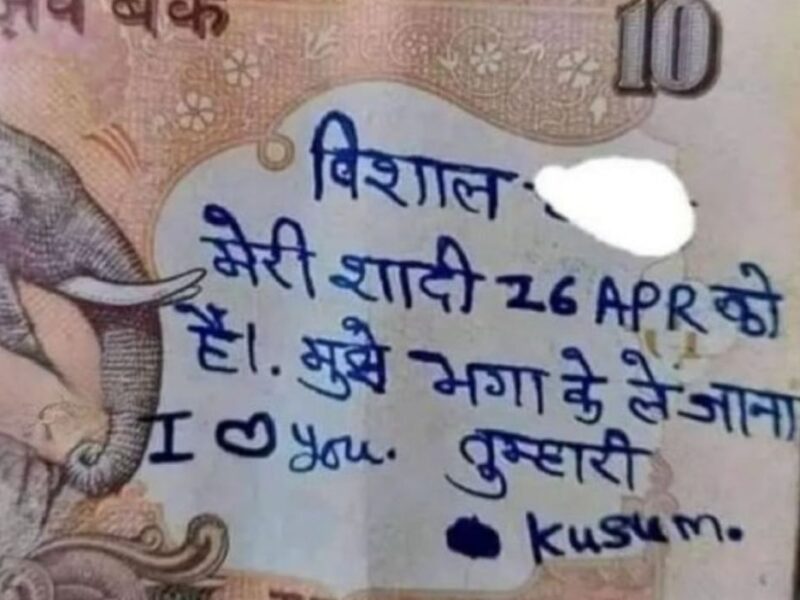 बैंक
10
विशाल
मेरी शादी 26 APR को
है।. मुझे भगा के ले जाना
I ♡ you. तुम्हारी
kusum.